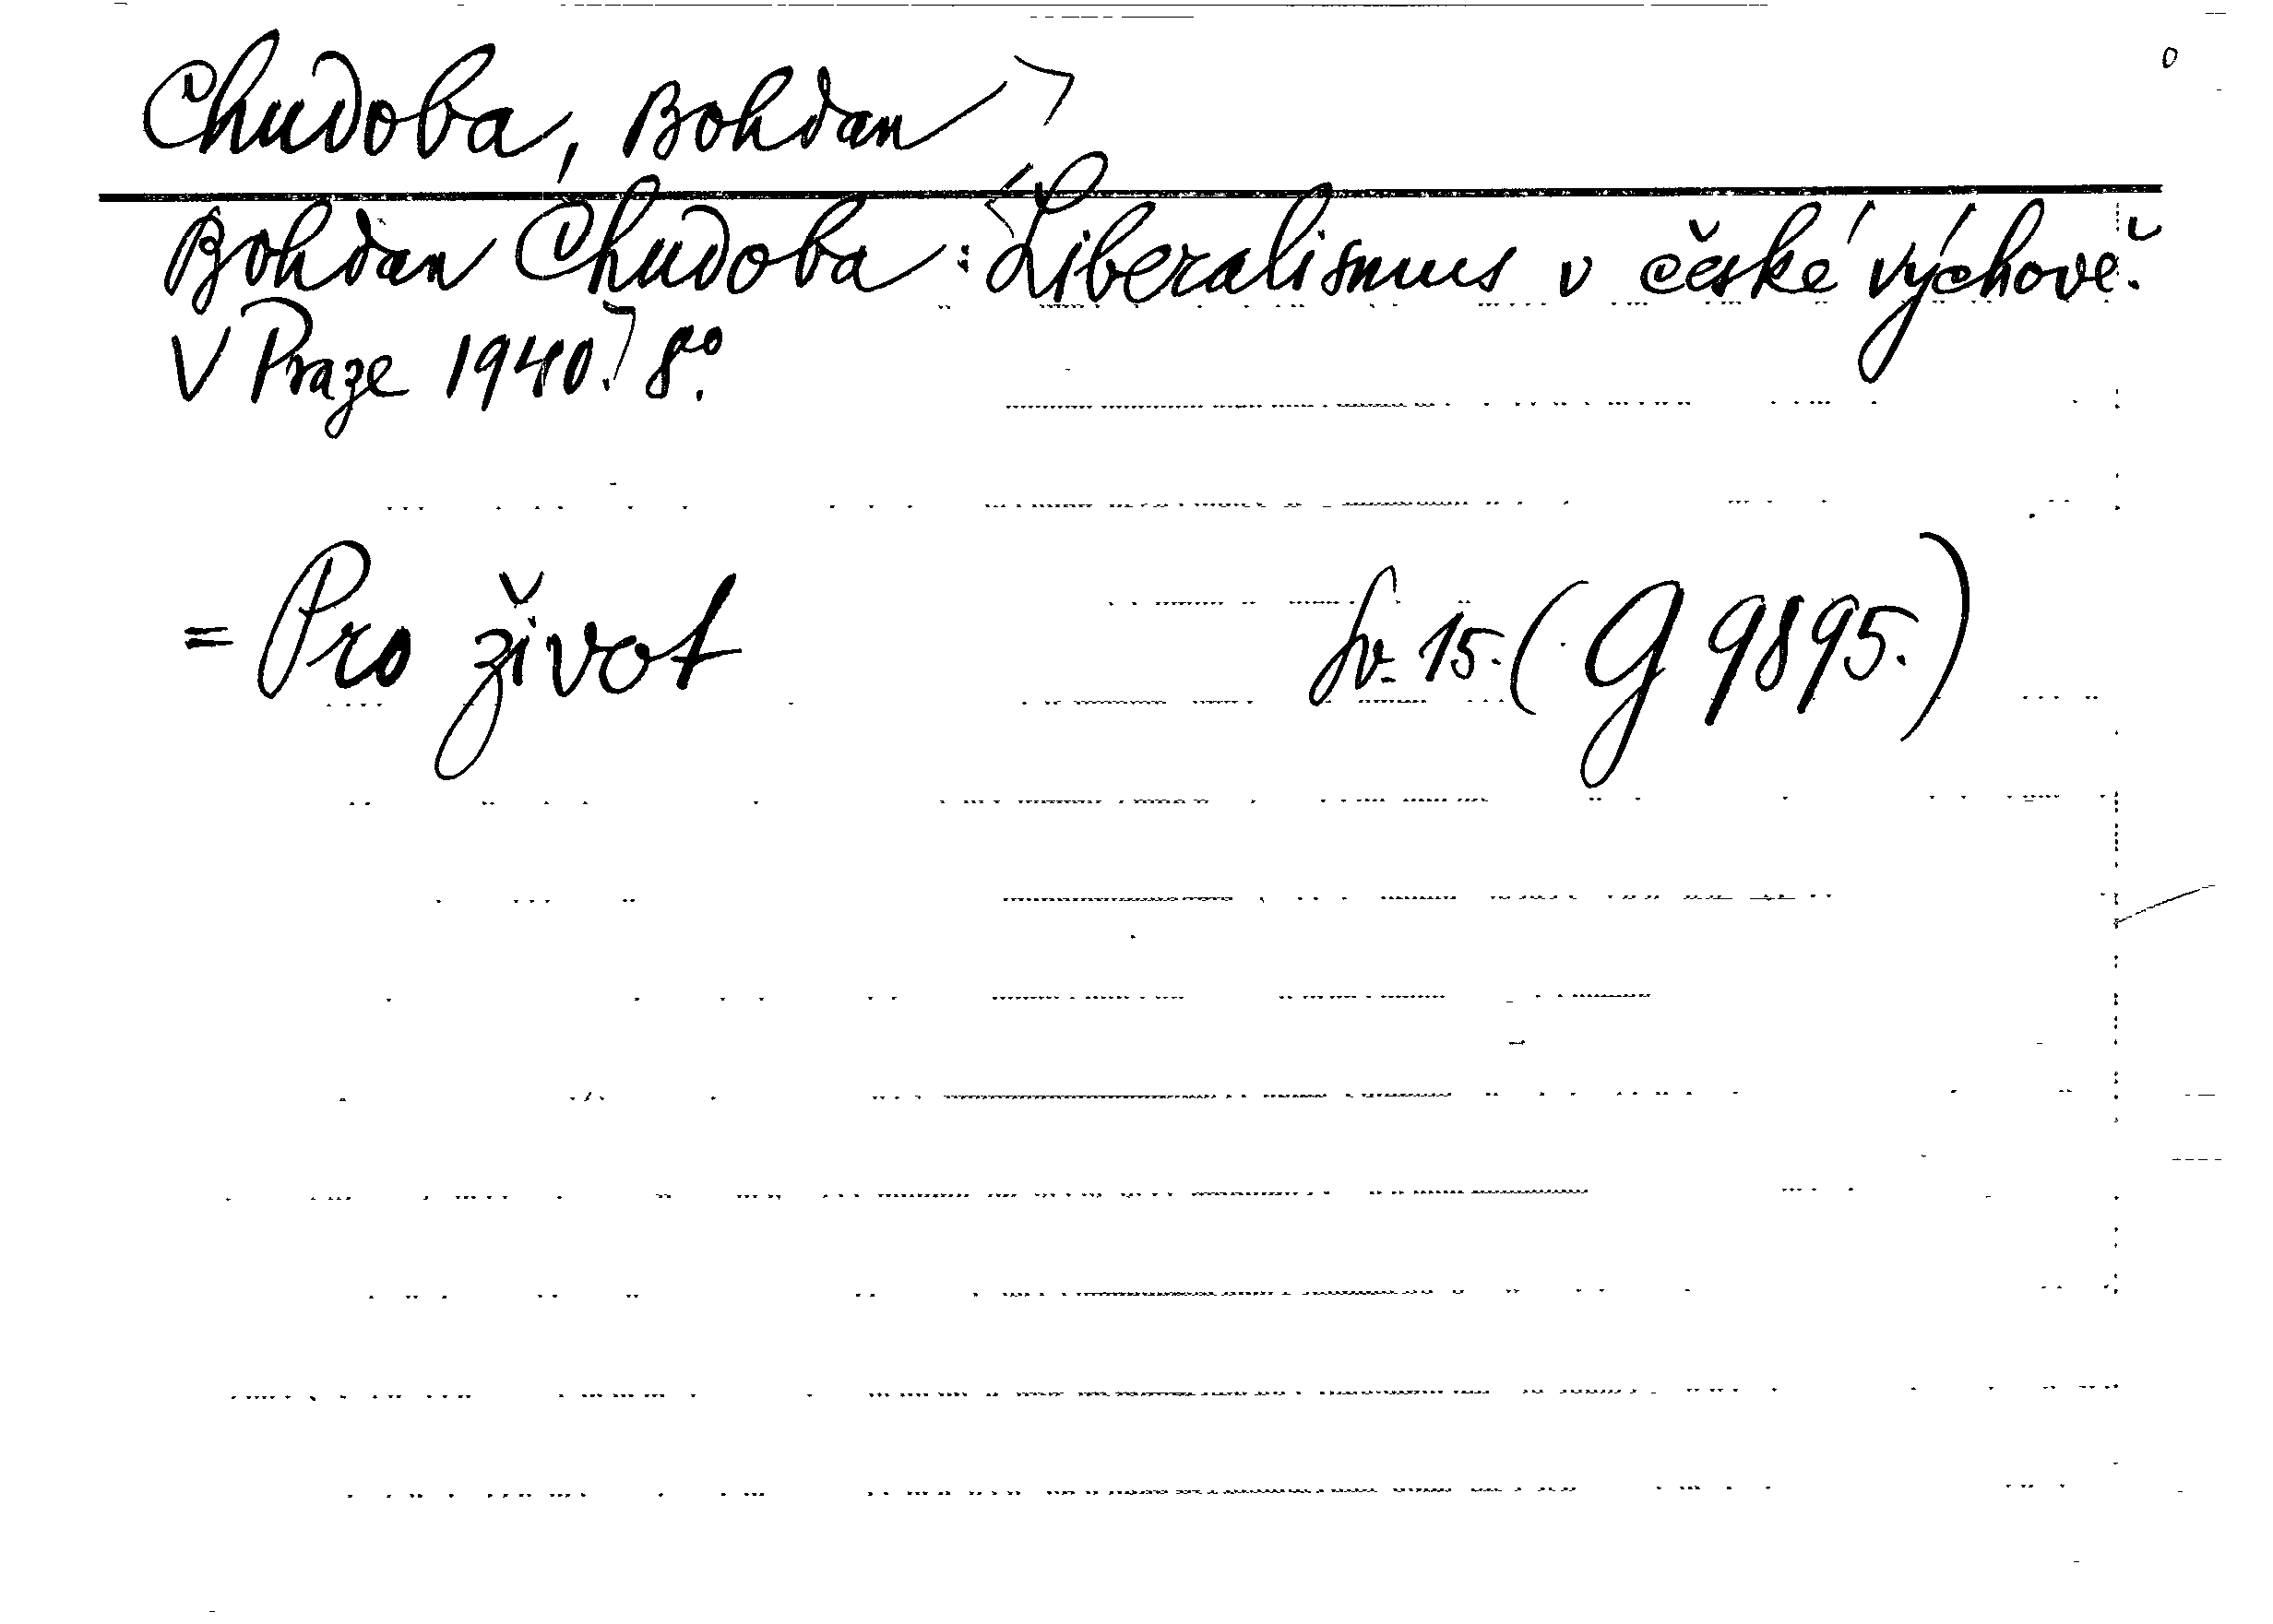 Chudoba, Bohdan
Bohdan Chudoba: Liberalismus v české výchově.
V Praze 1940. 8°.
= Pro život Sv. 15. (G 9895.)